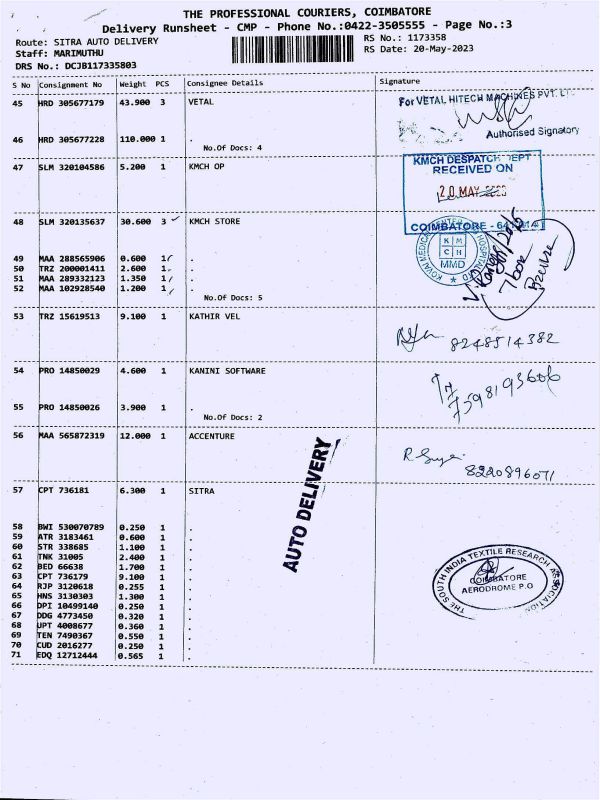 THE PROFESSIONAL COURIERS, COIMBATORE
Delivery Runsheet - CMP - Phone No.:0422-3505555 - Page No.:3
Route: SITRA AUTO DELIVERY
Staff: MARIMUTHU
DRS No.: DCJB117335803
RS No.: 1173358
RS Date: 20-May-2023
S No Consignment No Weight PCS Consignee Details Signature
45 HRD 305677179 43.900 3 VETAL
For VETAL HITECH MACHINES PVT. LT
Authorised Signatory
46 HRD 305677228 110.000 1 .
No.Of Docs: 4
47 SLM 320104586 5.200 1 KMCH OP
KMCH DESPATCH DEPT
RECEIVED ON
20 MAY 2023
COIMBATORE - 641 014
48 SLM 320135637 30.600 3 KMCH STORE
KMCH
MMD
49 MAA 288565906 0.600 1 .
50 TRZ 200001411 2.600 1 .
51 MAA 289332123 1.350 1 .
52 MAA 102928540 1.200 1 .
No.Of Docs: 5
7 box
53 TRZ 15619513 9.100 1 KATHIR VEL
8248514382
54 PRO 14850029 4.600 1 KANINI SOFTWARE
55 PRO 14850026 3.900 1 .
No.Of Docs: 2
56 MAA 565872319 12.000 1 ACCENTURE
8220896071
AUTO DELIVERY
57 CPT 736181 6.300 1 SITRA
58 BWI 530070789 0.250 1 .
59 ATR 3183461 0.600 1 .
60 STR 338685 1.100 1 .
61 TNK 31005 2.400 1 .
62 BED 66638 1.700 1 .
63 CPT 736179 9.100 1 .
64 RJP 3120618 0.255 1 .
65 HNS 3130303 1.300 1 .
66 DPI 10499140 0.250 1 .
67 DDG 4773450 0.320 1 .
68 UPT 4008677 0.360 1 .
69 TEN 7490367 0.550 1 .
70 CUD 2016277 0.250 1 .
71 EDQ 12712444 0.565 1 .
THE SOUTH INDIA TEXTILE RESEARCH ASSOCIATION
COIMBATORE
AERODROME P.O